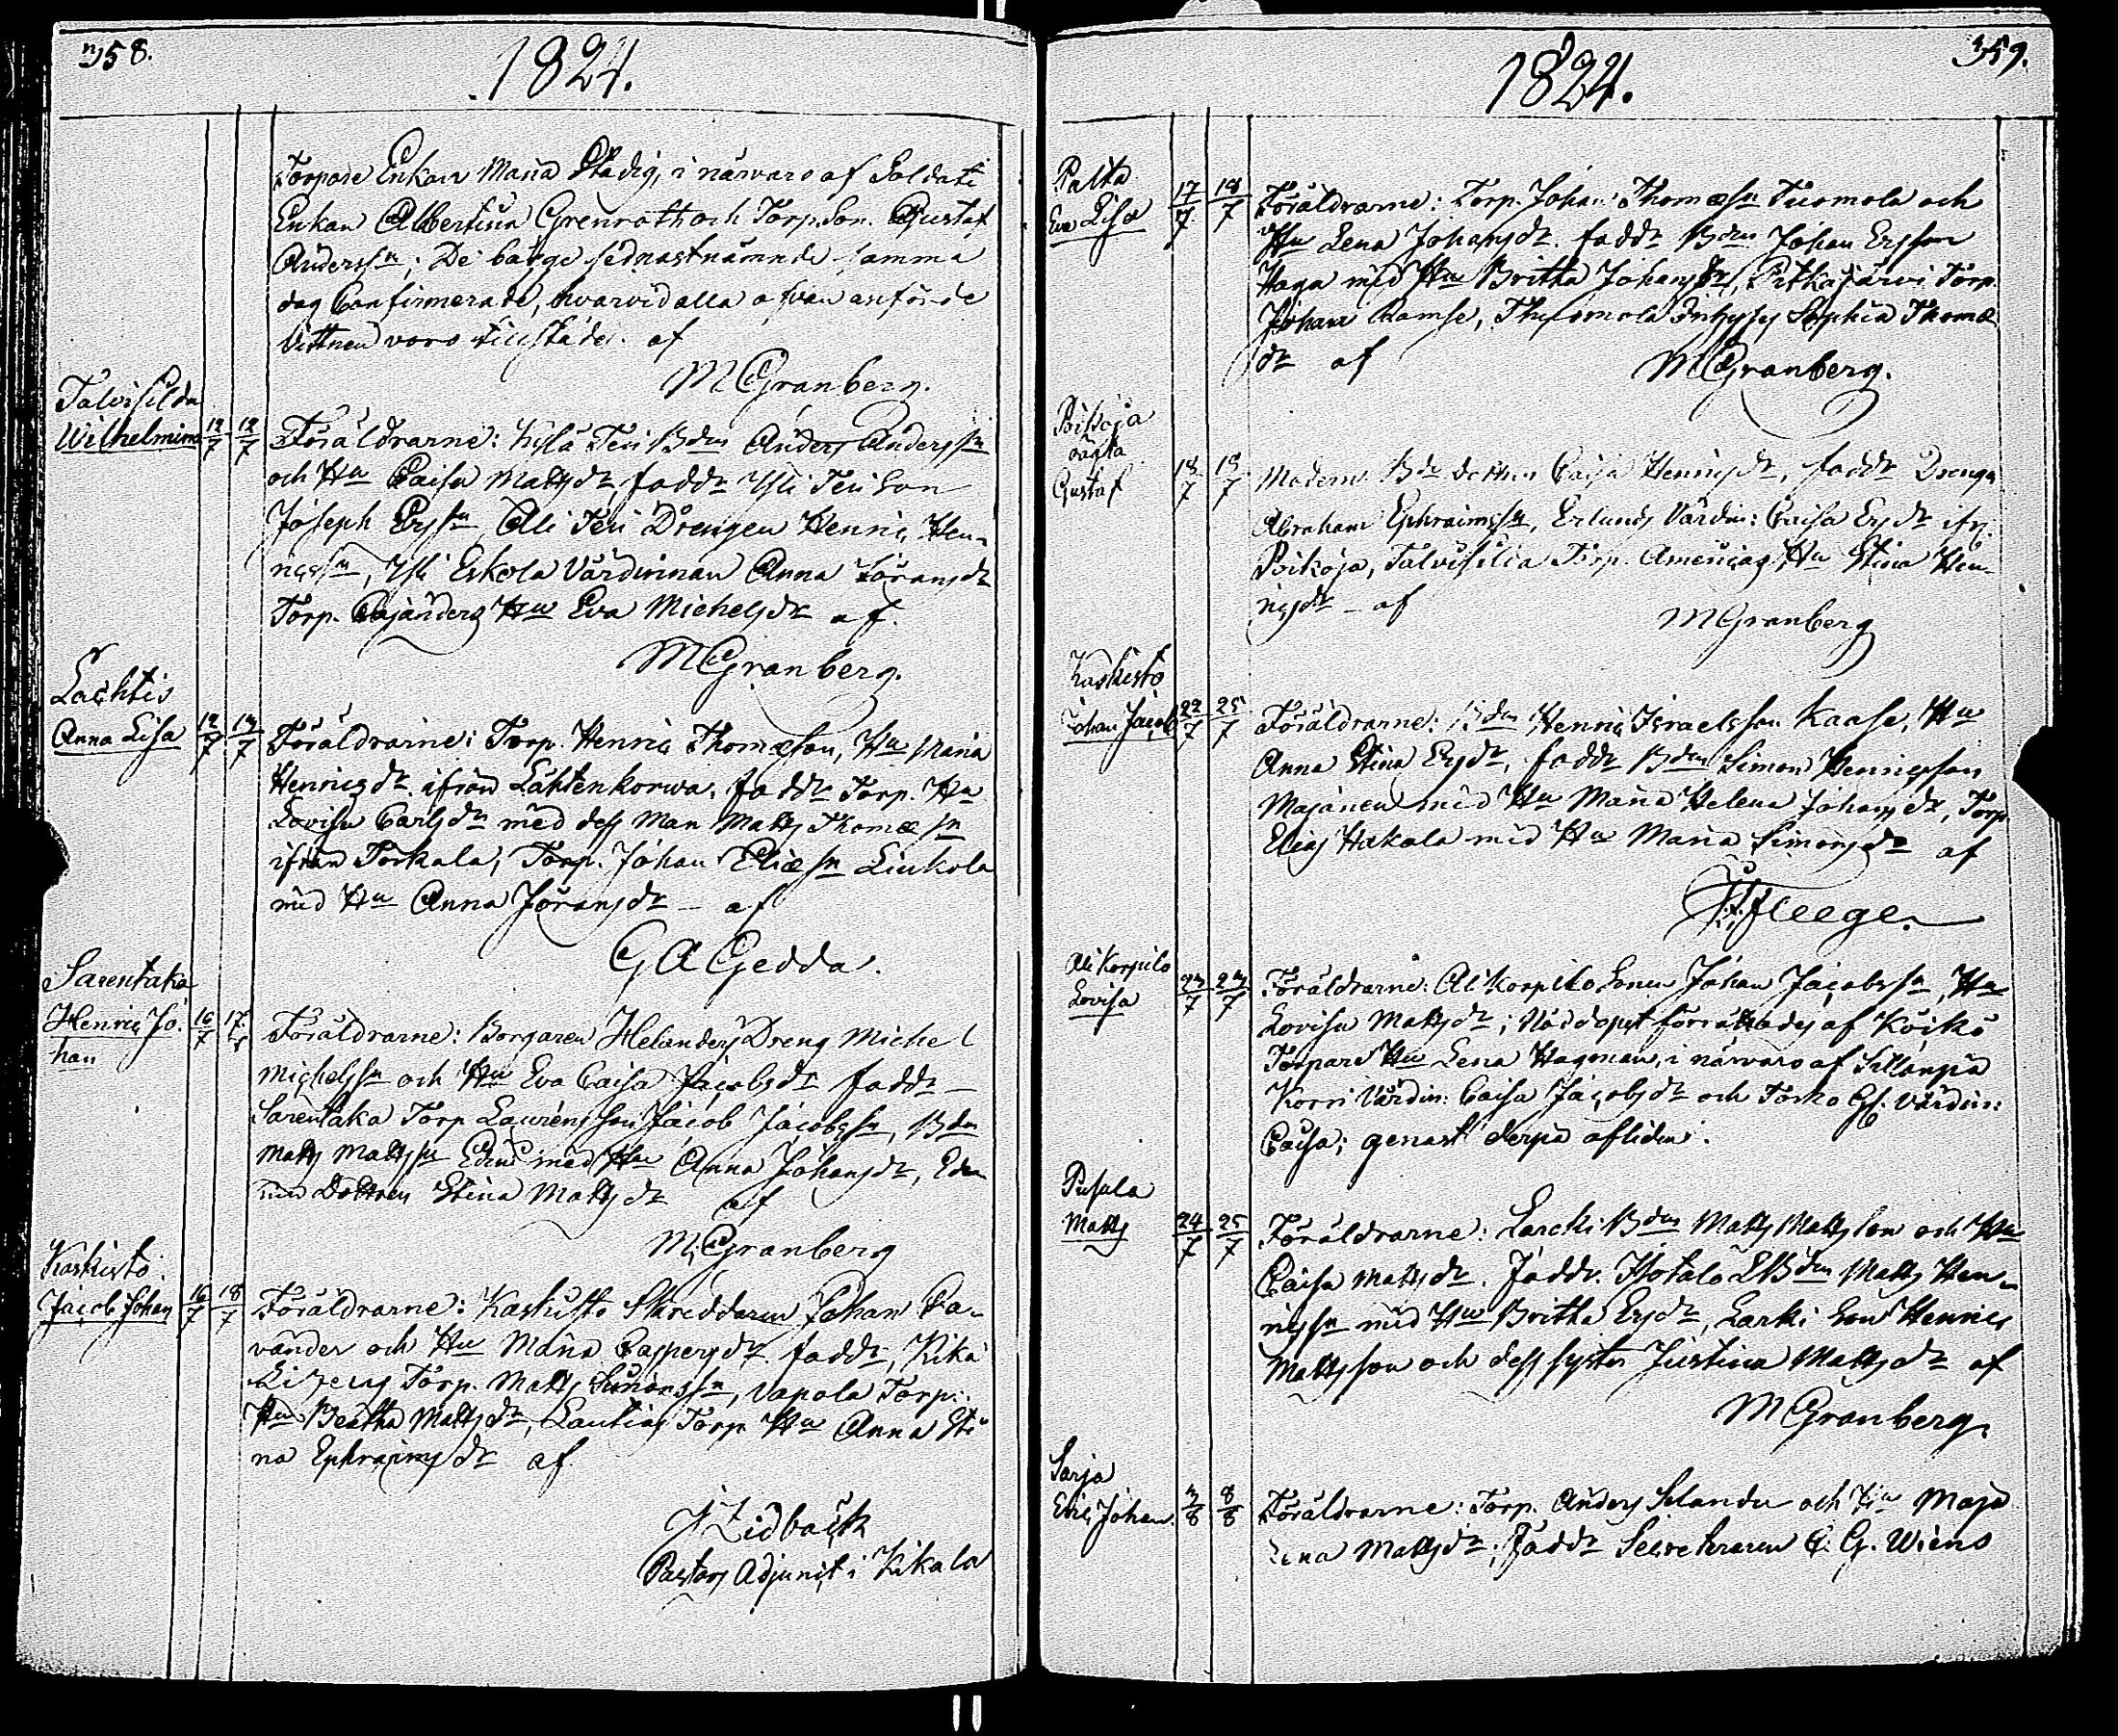 358.
1824.
Torpare Enkan Maria Stadig, i närvaro af Soldats
Enkan Albertina Grenroth och Torp. Son. Gustaf
Anderssn; De bägge sednastnämnde samma
dag Confirmerade, hvarvid alla ofvan anförde
Vittnen voro tillstädes. af
MGranberg.
Talvisilda
Wilhelmina 12/7 12/7 Föräldrarne: Kylä Teri Bdn Anders Anderssn
och Hu Caisa Mattsdr, faddr Yli Teri Son
Joseph Erssn, Ali Teri Drengen Henric Hen-
ricssn, Yli Eskola Värdinnan Anna Göransdr
Torp. Cajanders Hu Eva Michelsdr af.
MGranberg.
Lachtis
Anna Lisa 12/7 13/7 Föräldrarne: Torp. Henric Thomæson, Hu Maria
Henricsdr. ifrån Lahtenkorwa. faddr Torp. Hu
Lovisa Carlsdr med dess Man Matts Thomæ sn
ifrån Torkala, Torp. Johan Eliæ sn Liukola
med Hu Anna Göransdr – af
GAGedda.
Sarentaka
Henric Jo. 16/7 17/7 Föräldrarne: Borgaren Helanders Dreng Michel
han
Michelssn och Hu Eva Caisa Jacobsdr faddr –
Sarentaka Torp Laurens son Jacob Jacobssn, Bdn
Matts Mattssn Edens med Hu Anna Johansdr, Eden
Dottren Stina Mattsdr af
M.Granberg
Kaskisto.
Jacob Johan 16/7 18/7 Föräldrarne: Kaskisto Skreddaren Johan Ca-
vander och Hu Maria Caspersdr. faddr, Kika
Torp. Matts Simonssn, Vapola Torp.
Hu Beatha Mattsdr, Lautias Torp Hu Anna Sti
na Ephraimsdr af
J Lidbäck
Pastors Adjunct i Kikala
359.
1824.
Palta
Eva Lisa 17/7 18/7 Föräldrarne: Torp. Johan Thomæsn Tuomola och
Hu Lena Johansdr. faddr Bdn Johan Ersson
Haga med Hu Britha Johansdr, Pitkäjärvi Torp.
Johan Ramse, Thuomola Inhyses Sophia Thomæ
dr af
MGranberg.
Poikoja
oägta
Gustaf 18/7 18/7 Modern Bde dottren Caisa Henricsdr, faddr Drengn
Abraham Ephraimssn, Erlunds Värdin: Caisa Ersdr ifr.
Poikoja, Talvisilda Torp. Americas Hu Stina Hen-
ricsdr – af
MGranberg
Kaskisto
Johan Jacob 22/7 25/7 Föräldrarne: Bdn Henric Israelsson Kaase, Hu
Anna Stina Ersdr, faddr Bdn Simon Henricsson
Majanen med Hu Maria Helena Johansdr, Torp.
Elias Hakala med Hu Maria Simonsdr af
Fleege.
Ali Korpilo
Lovisa 23/7 23/7 Föräldrarne: Ali Korpilo Sonen Johan Jacobssn, Hu
Lovisa Mattsdr; Nöddopet förrättades af Koikö
Torpare Hu Lena Hagman, i närvaro af Sillanpä
Korri Värdin: Caisa Jacobsdr och Torko Gl. värdin:
Caisa; genast derpå afliden.
Pusula
Matts 24/7 25/7 Föräldrarne: Larcki Bdn Matts Mattsson och Hu
Caisa Mattsdr. faddr. Hotalo Bdn Matts Hen-
ricssn med Hu Britha Ersdr, Larki Son Henric
Mattsson och dess syster Justina Mattsdr af
MGranberg.
Sarja
Eric Johan. 3/8 8/8 Föräldrarne: Torp. Anders Selander och Hu Maja
Lena Mattsdr; faddr Secreteraren C. G. Wiens